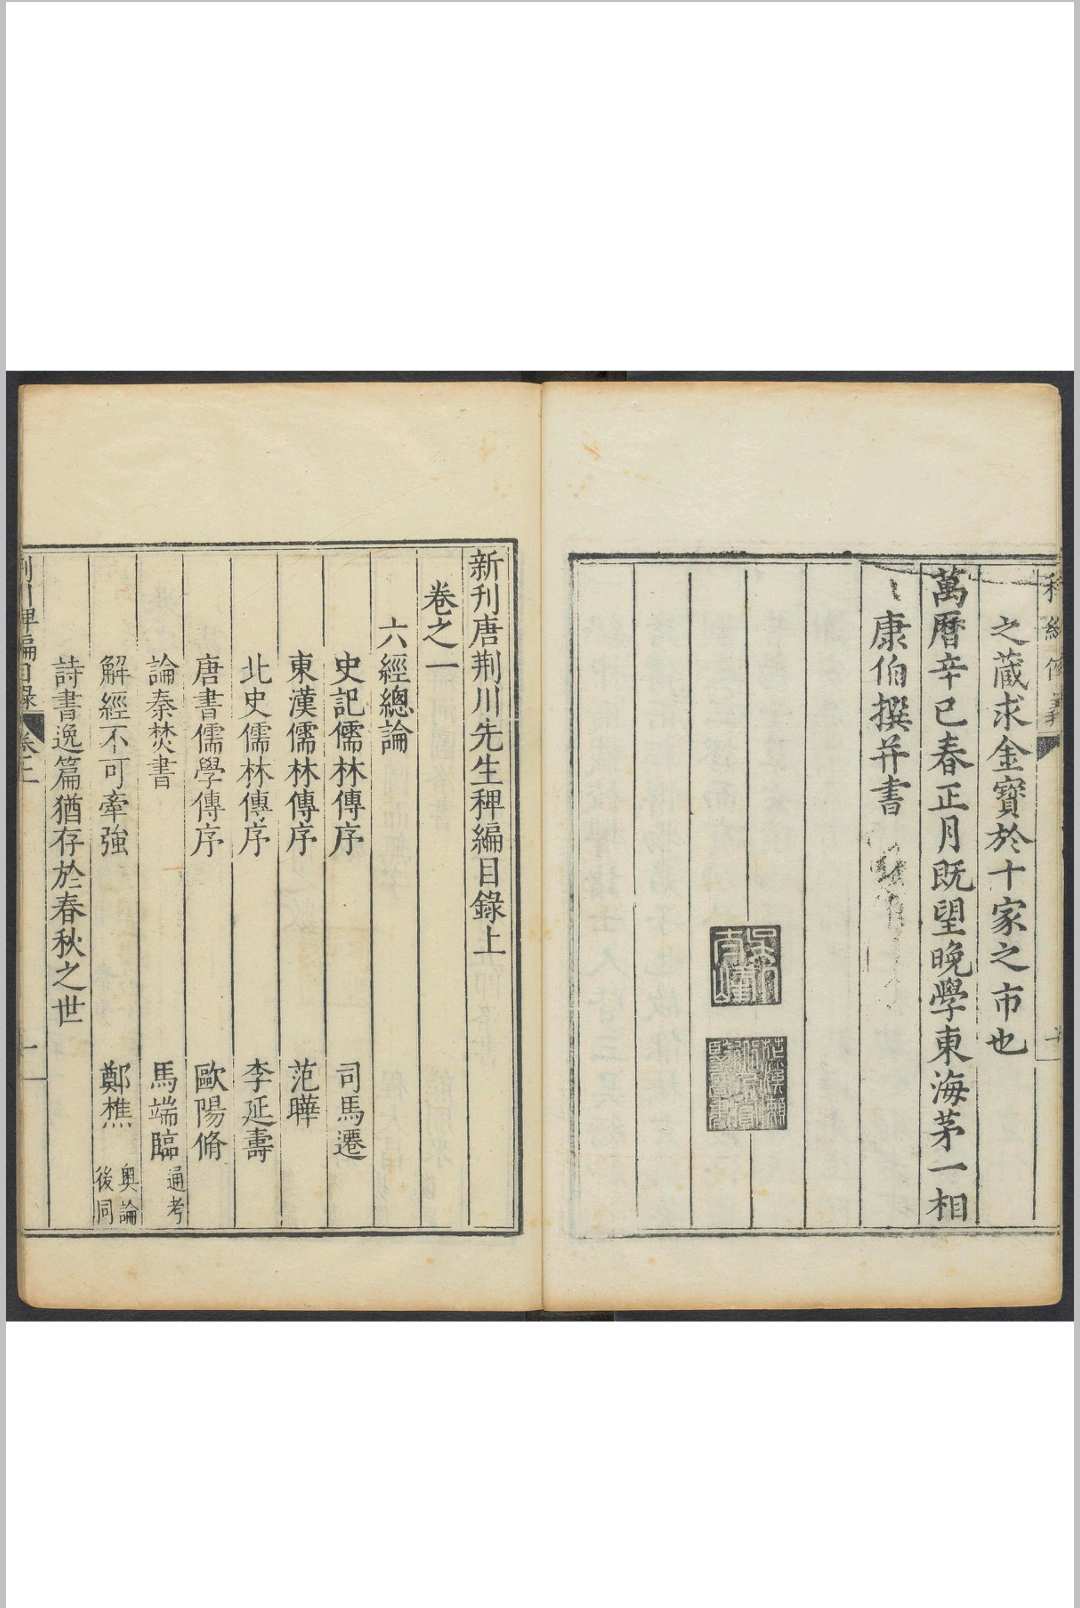 之藏求金寶於十家之市也
萬曆辛巳春正月既望晚學東海茅一相
康伯撰并書
新刊唐荆川先生稗編目錄上
卷之一
六經總論
史記儒林傳序 司馬遷
東漢儒林傳序 范曄
北史儒林傳序 李延壽
唐書儒學傳序 歐陽脩
論秦焚書 馬端臨 通考
解經不可牽強 鄭樵 奥論後同
詩書逸篇猶存於春秋之世
荆川稗編目錄 卷上 一